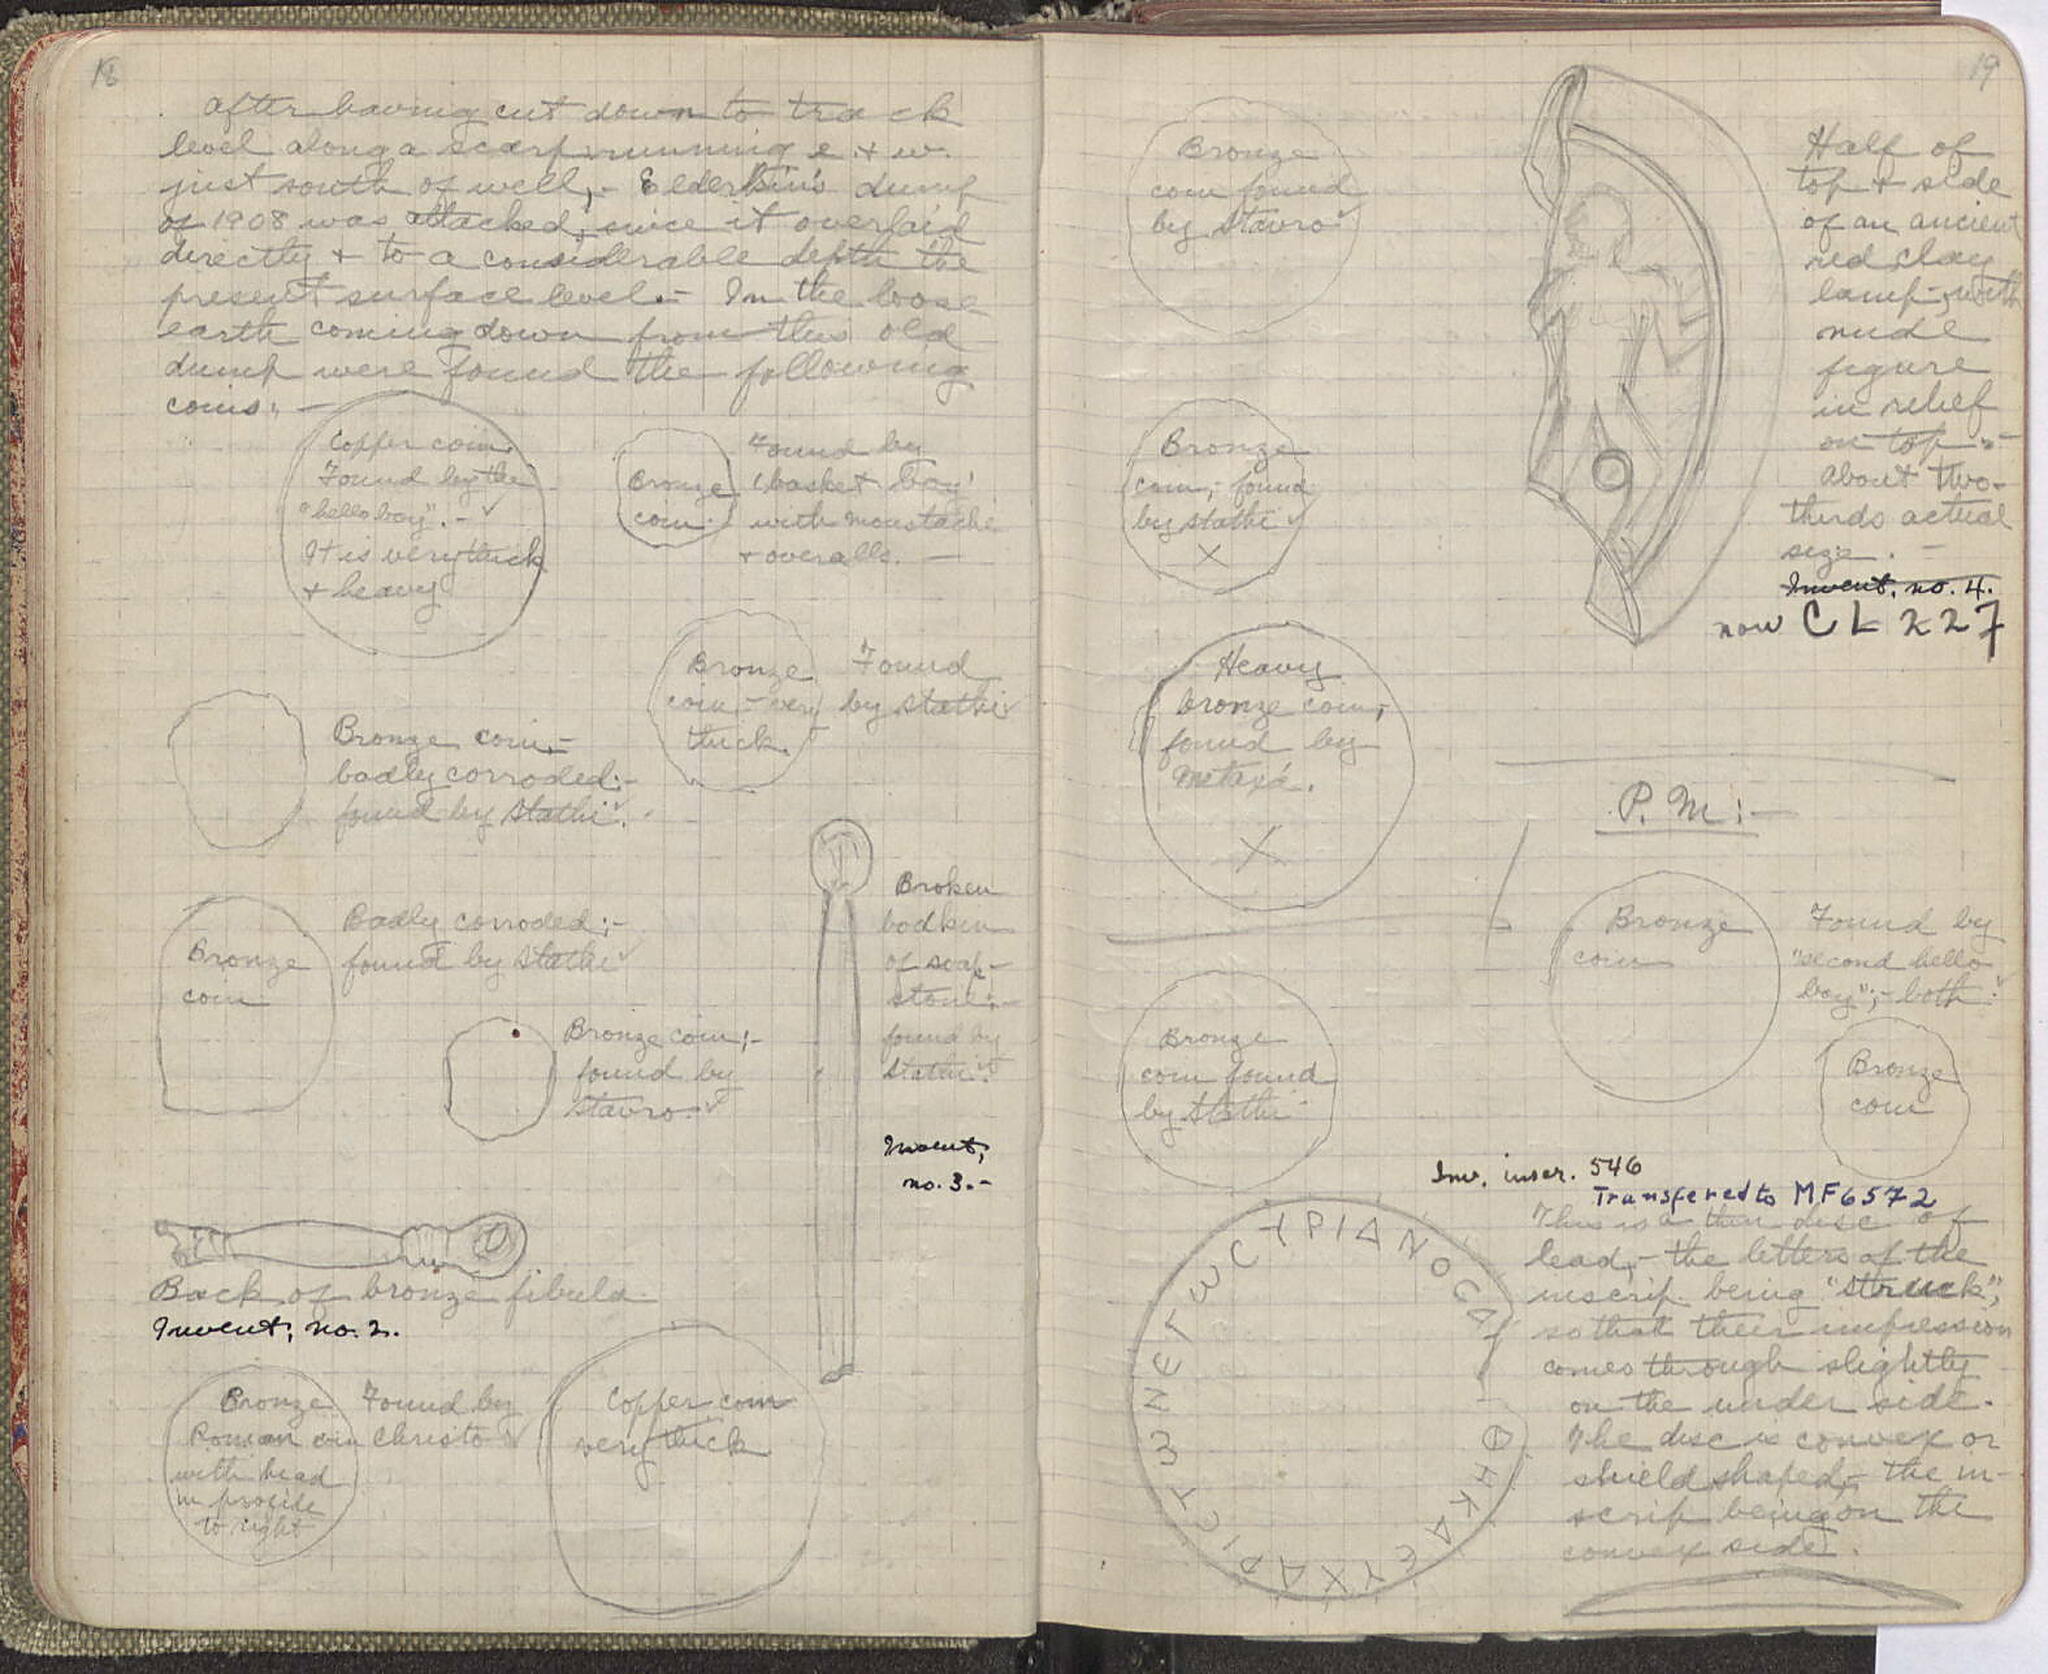 18
After having cut down to track
level along a scarp running e. + w.
just south of well,- Elderkin's dump
of 1908 was attacked, since it overlaid
directly + to a considerable depth the
present surface level.- In the loose
earth coming down from this old
dump were found the following
coins:-
Copper coin.
Found by the
"hello boy".-
It is very thick
+ heavy
Bronze
coin.
Found by
'basket boy'
with moustache
+ overalls. -
Bronze
coin - very
thick.
Found
by Stathi
Bronze coin,-
badly corroded:-
found by Stathi.
Bronze
coin
Badly corroded;-
found by Stathi
Bronze coin;-
found by
Stavro-
Broken
bodkin
of soap-
stone:-
found by
Stathi.
Invent,
no. 3.-
Back of bronze fibula.
Invent, no. 2.
Bronze
Roman coin
with head
in profile
to right
Found by
Christo
Copper coin
very thick
19
Bronze
coin found
by Stavro
Bronze
coin,- found
by Stathi
X
Heavy
bronze coin,
found by
Metaxá.
X
Bronze
coin found
by Stathi
Half of
top + side
of an ancient
red clay
lamp, with
nude
figure
in relief
on top.-
About two-
thirds actual
size. -
Invent. no. 4.
now CL 227
P.M:-
Bronze
coin
Found by
"second hello
boy";- both.
Bronze
coin
Inv. inscr. 546
Transfered to MF 6572
This is a thin disc of
lead,- the letters of the
inscrip. being "struck",
so that their impression
comes through slightly
on the under side.
The disc is convex or
shield shaped,- the in-
scrip being on the
convex side.